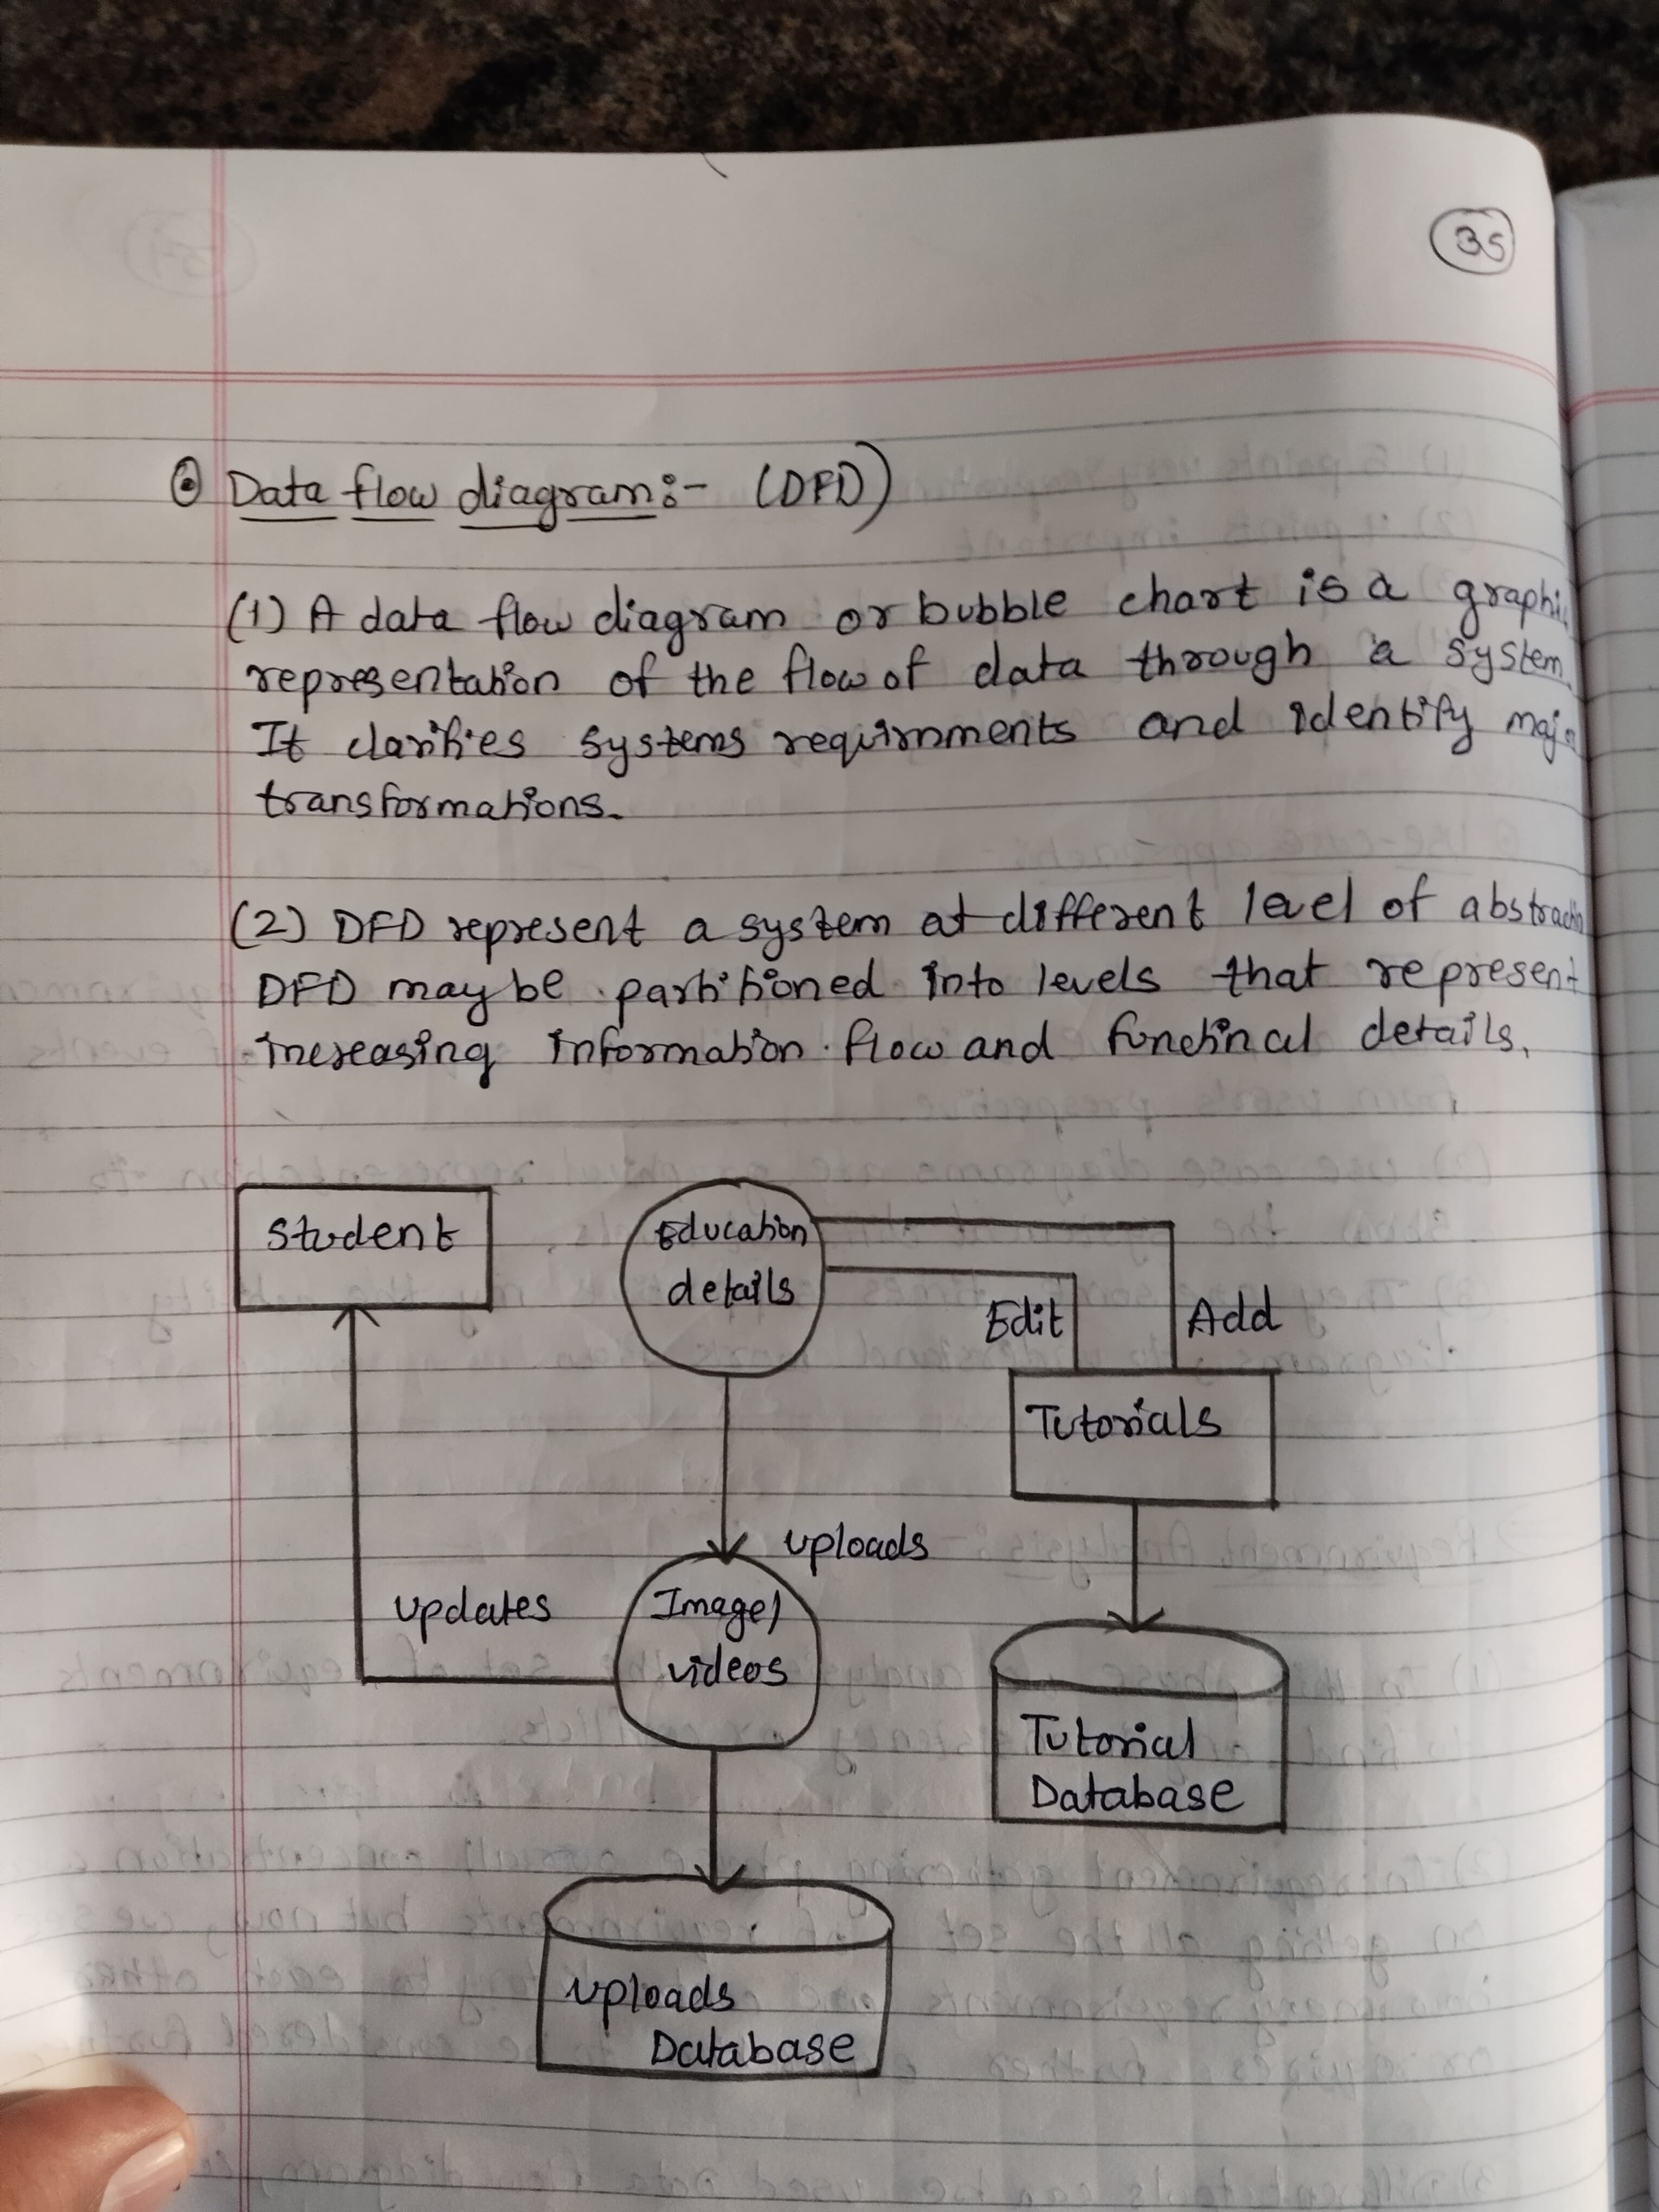 35
Data flow diagram:- (DFD)
(1) A data flow diagram or bubble chart is a graphi
representation of the flow of data through a system.
It clarifies systems requirnments and identify major
transformations.
(2) DFD represent a system at different level of abstraction
DFD may be partitioned into levels that represent
increasing information flow and functinal details.
Student
Education
details
Edit
Add
Tutorials
uploads
updates
Image/
videos
Tutorial
Database
uploads
Database